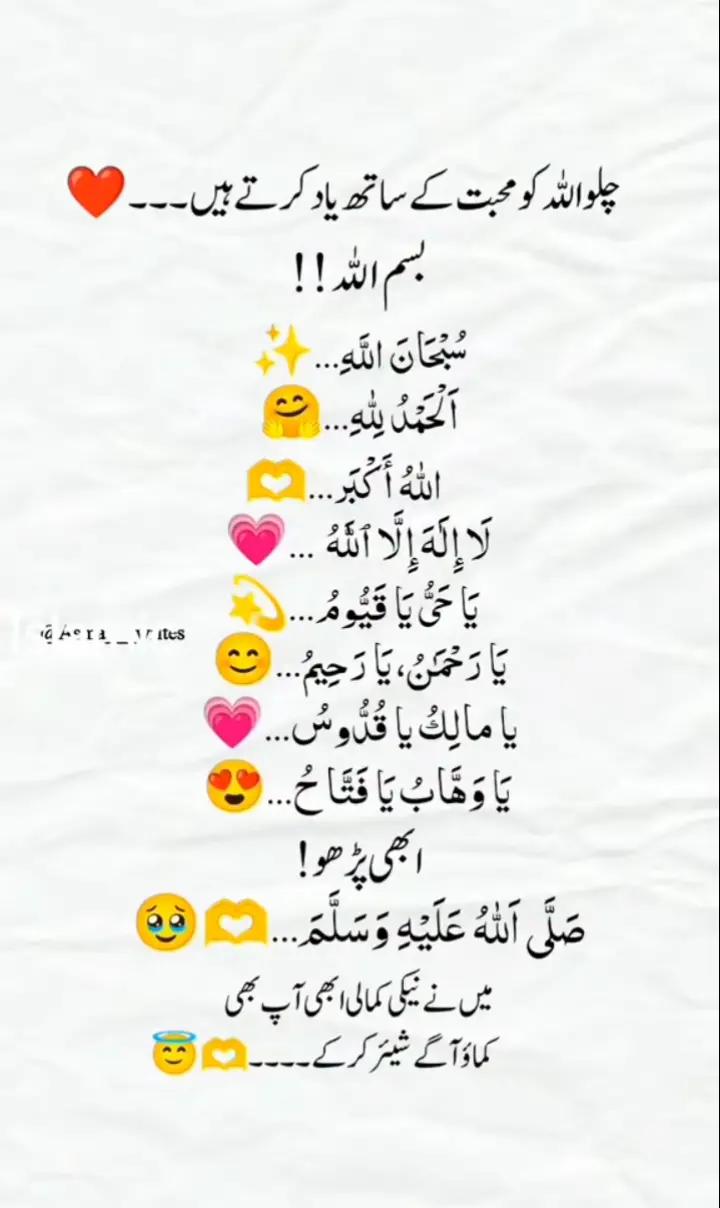 چلو اللہ کو محبت کے ساتھ یاد کرتے ہیں۔۔۔❤️
بسم اللہ !!
سُبْحَانَ اللَّهِ...✨
اَلْحَمْدُ لِلّٰهِ...🤗
اللّٰهُ أَكْبَر...🫶
لَا إِلَهَ إِلَّا ٱللَّٰهُ ...💗
يَا حَيُّ يَا قَيُّومُ...💫
يَا رَحْمَٰنُ، يَا رَحِيمُ...😊
يا مالِكُ يا قُدُّوسُ...💗
يَا وَهَّابُ يَا فَتَّاحُ...😍
ابھی پڑھو!
صَلَّى اَللّٰهُ عَلَيْهِ وَسَلَّمَ...🫶🥹
میں نے نیکی کمالی ابھی آپ بھی
کماؤ آگے شیئر کر کے۔۔۔۔🫶😇